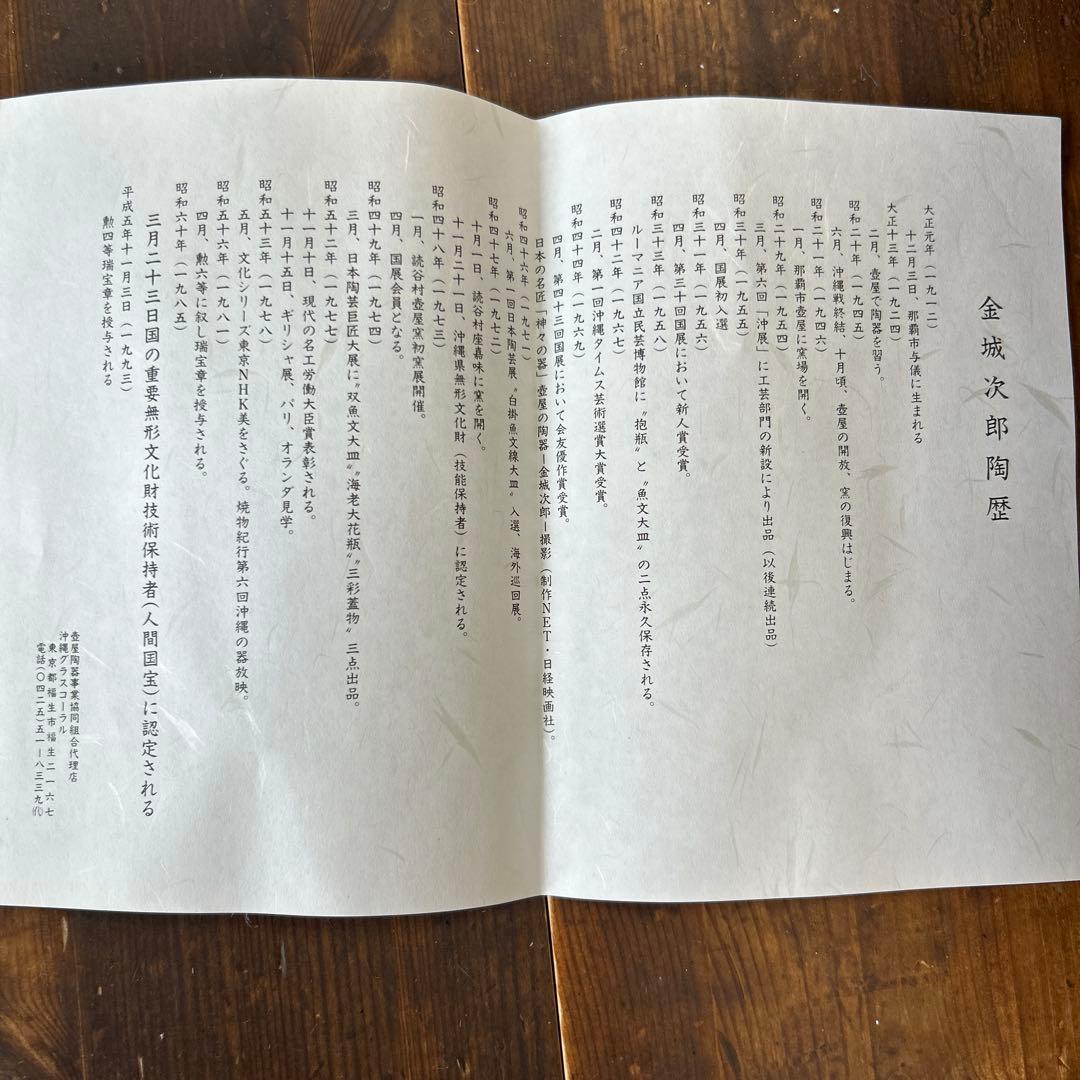 金城次郎陶歴
大正元年（一九一二）
十二月三日、那覇市与儀に生まれる
大正十三年（一九二四）
二月、壺屋で陶器を習う。
昭和二十年（一九四五）
六月、沖縄戦終結、十月頃、壺屋の開放、窯の復興はじまる。
昭和二十一年（一九四六）
一月、那覇市壺屋に窯場を開く。
昭和二十九年（一九五四）
三月、第六回「沖展」に工芸部門の新設により出品（以後連続出品）
昭和三十年（一九五五）
四月、国展初入選
昭和三十一年（一九五六）
四月、第三十回国展において新人賞受賞。
昭和三十三年（一九五八）
ルーマニア国立民芸博物館に〝抱瓶〟と〝魚文大皿〟の二点永久保存される。
昭和四十二年（一九六七）
二月、第一回沖縄タイムス芸術選賞大賞受賞。
昭和四十四年（一九六九）
四月、第四十三回国展において会友優作賞受賞。
日本の名匠「神々の器」壺屋の陶器―金城次郎―撮影（制作NET・日経映画社）。
昭和四十六年（一九七一）
六月、第一回日本陶芸展〝白掛魚文線大皿〟入選、海外巡回展。
昭和四十七年（一九七二）
十月一日、読谷村座嘉味に窯を開く。
十一月二十一日、沖縄県無形文化財（技能保持者）に認定される。
昭和四十八年（一九七三）
一月、読谷村壺屋窯初窯展開催。
四月、国展会員となる。
昭和四十九年（一九七四）
三月、日本陶芸巨匠大展に〝双魚文大皿〟〝海老大花瓶〟〝三彩蓋物〟三点出品。
昭和五十二年（一九七七）
十一月十日、現代の名工労働大臣賞表彰される。
十一月十五日、ギリシャ展、パリ、オランダ見学。
昭和五十三年（一九七八）
五月、文化シリーズ東京NHK美をさぐる。焼物紀行第六回沖縄の器放映。
昭和五十六年（一九八一）
四月、勲六等に叙し瑞宝章を授与される。
昭和六十年（一九八五）
三月二十三日国の重要無形文化財技術保持者（人間国宝）に認定される
平成五年十一月三日（一九九三）
勲四等瑞宝章を授与される
壺屋陶器事業協同組合代理店
沖縄グラスコーラル
東京都福生市福生二一六七
電話（〇四二五）五一―八三三九㈹